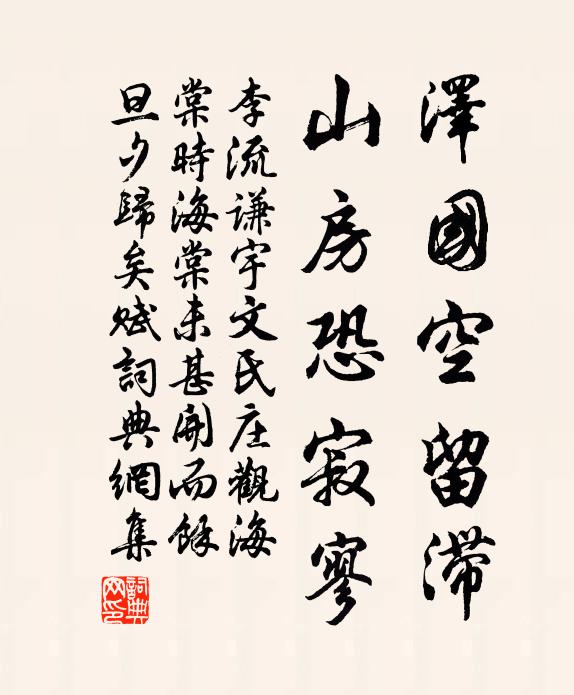 澤國空留滯
山房恐寂寥
李流謙宇文氏庄觀海
棠時海棠未甚開而餘
旦夕歸矣賦詞典網集
詞典網印